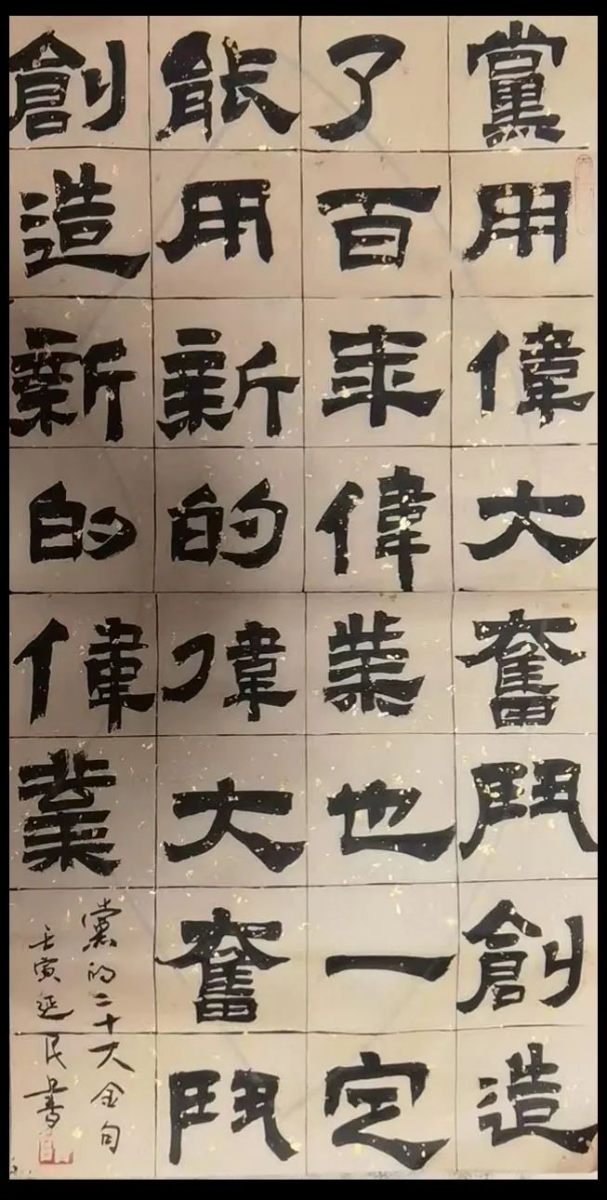 黨用偉大奮鬥創造
了百年偉業也一定
能用新的偉大奮鬥
創造新的偉業
黨的二十大金句
壬寅延民書